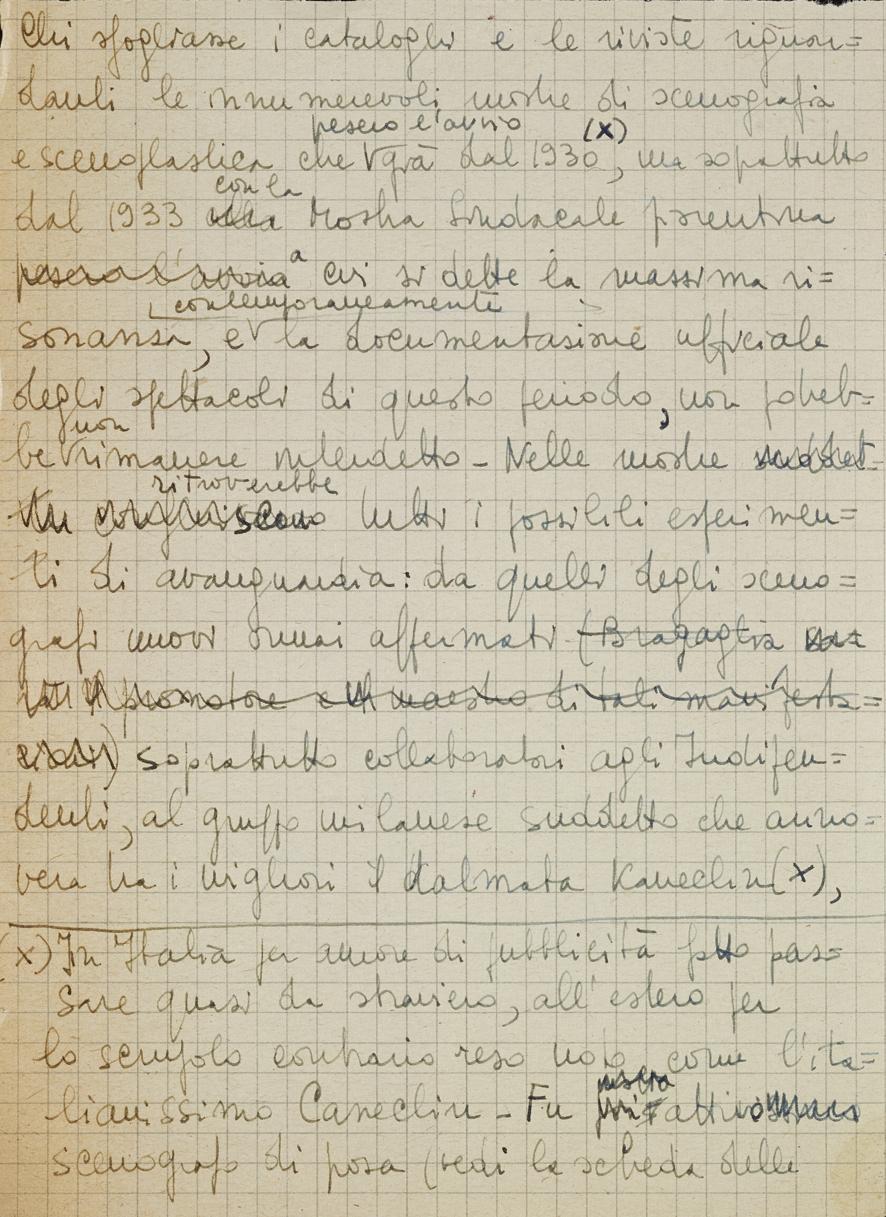 Chi sfogliasse i cataloghi e le riviste riguar=
danti le innumerevoli mostre di scenografia
presero l'avvio (x)
e scenoplastica che già dal 1930, ma soprattutto
con la
dal 1933 alla Mostra Sindacale fiorentina
presero l'avvio a cui si dette la massima ri=
contemporaneamente
sonanza, e la documentazione ufficiale
degli spettacoli di questo periodo, non potreb=
non
be rimanere interdetto - Nelle mostre suddet=
ritroverebbe
te tutti i possibili esperimen=
ti di avanguardia: da quelli degli sceno=
grafi nuovi ormai affermati (Bragaglia
il promotore e il maestro di tali manifesta=
zioni) soprattutto collaboratori agli Indipen=
denti, al gruppo milanese suddetto che anno=
vera tra i migliori il dalmata Kaneclin (x),
(x) In Italia per amore di pubblicità fatto pas=
sare quasi da straniero, all'estero per
lo scrupolo contrario reso noto come l'ita=
lianissimo Caneclin - Fu attivo
scenografo di posa (vedi la scheda delle